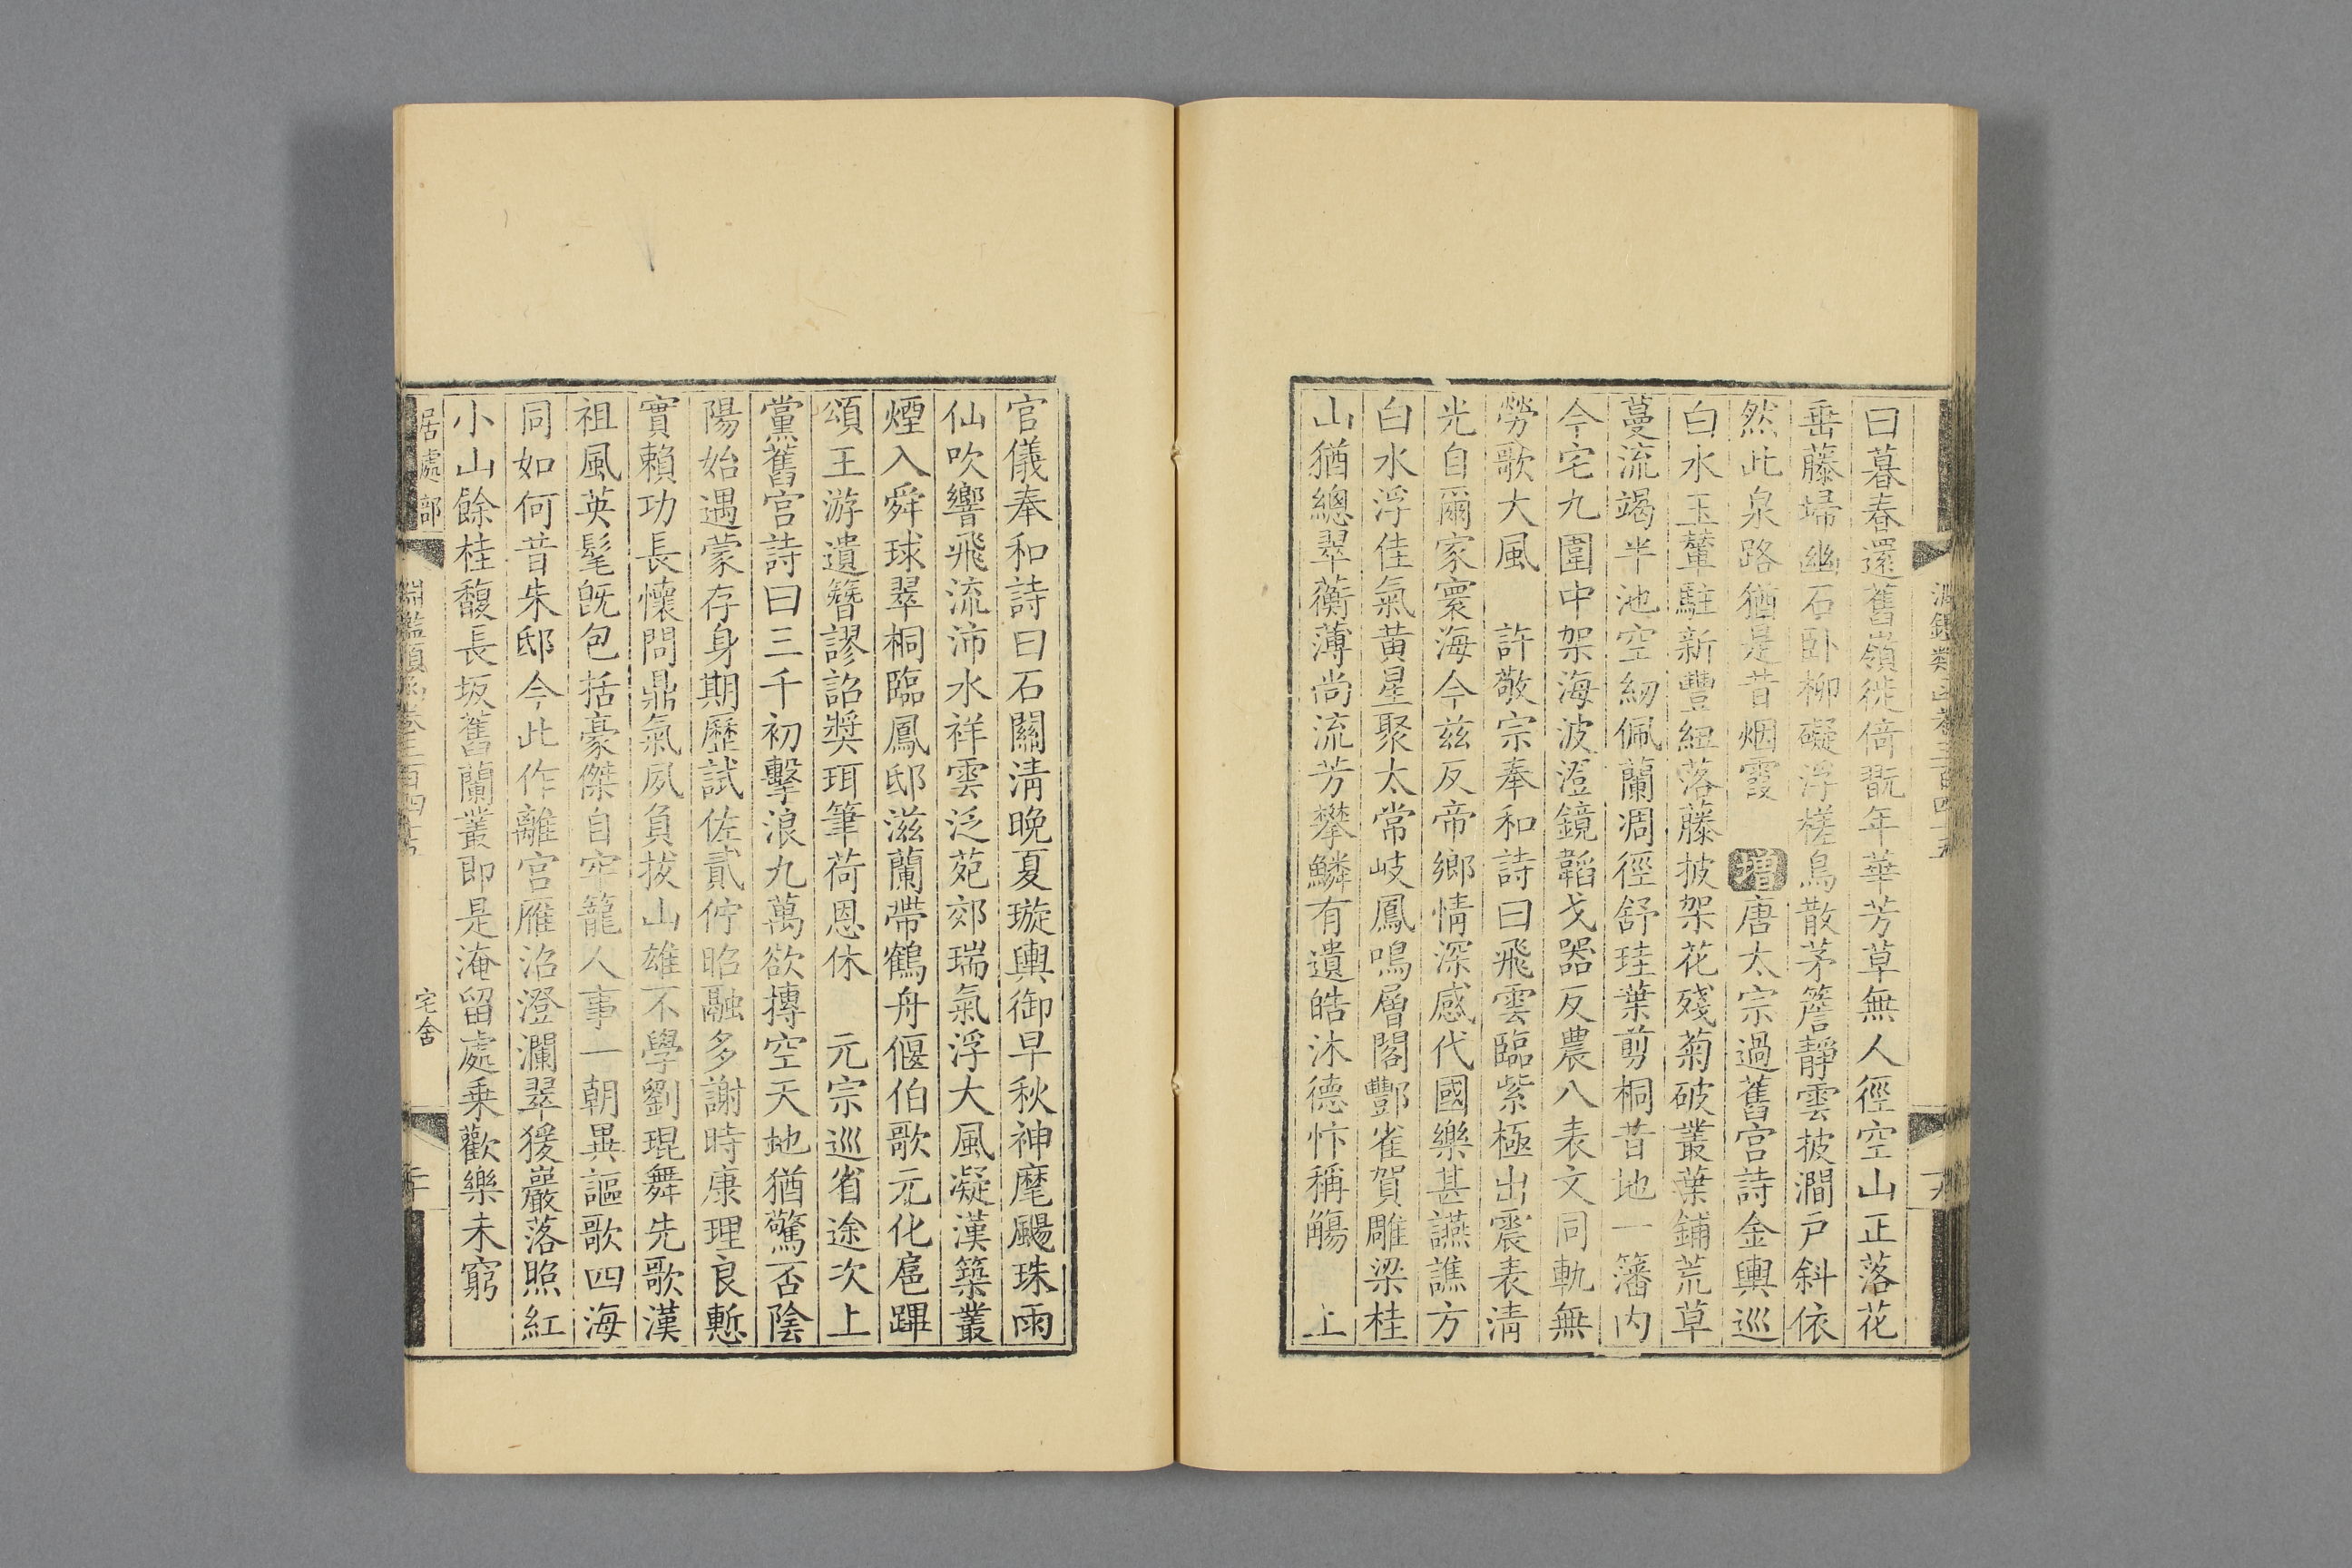 淵鑑類函卷三百四十五
曰暮春還舊嶺徙倚翫年華芳草無人徑空山正落花
垂藤埽幽石卧柳礙浮槎鳥散茅簷靜雲披澗戸斜依
然此泉路猶是昔烟霞 增唐太宗過舊宫詩金輿巡
白水玉輦駐新豐紐落藤披架花殘菊破叢葉鋪荒草
蔓流竭半池空紉佩蘭凋徑舒珪葉剪桐昔地一籓内
今宅九圍中架海波澄鏡韜戈器反農八表文同軌無
勞歌大風 許敬宗奉和詩曰飛雲臨紫極出震表清
光自爾家寰海今兹反帝鄉情深感代國樂甚讌譙方
白水浮佳氣黄星聚太常岐鳳鳴層閣酆雀賀雕梁桂
山猶總翠蘅薄尚流芳攀鱗有遺皓沐德忭稱觴 上
官儀奉和詩曰石關清晚夏璇輿御早秋神麾颺珠雨
仙吹響飛流沛水祥雲泛苑郊瑞氣浮大風凝漢築叢
煙入舜球翠桐臨鳳邸滋蘭帶鶴舟偃伯歌元化扈蹕
頌王游遺簪謬詔獎珥筆荷恩休 元宗巡省途次上
黨舊宫詩曰三千初擊浪九萬欲摶空天地猶驚否陰
陽始遇蒙存身期歷試佐貳佇昭融多謝時康理良慙
實賴功長懷問鼎氣夙負拔山雄不學劉琨舞先歌漢
祖風英髦旣包括豪傑自牢籠人事一朝異謳歌四海
同如何昔朱邸今此作離宫雁沼澄瀾翠猨巖落照紅
小山餘桂馥長坂舊蘭叢即是淹留處乘歡樂未窮
居處部
淵鑑類函卷三百四十五
宅舍